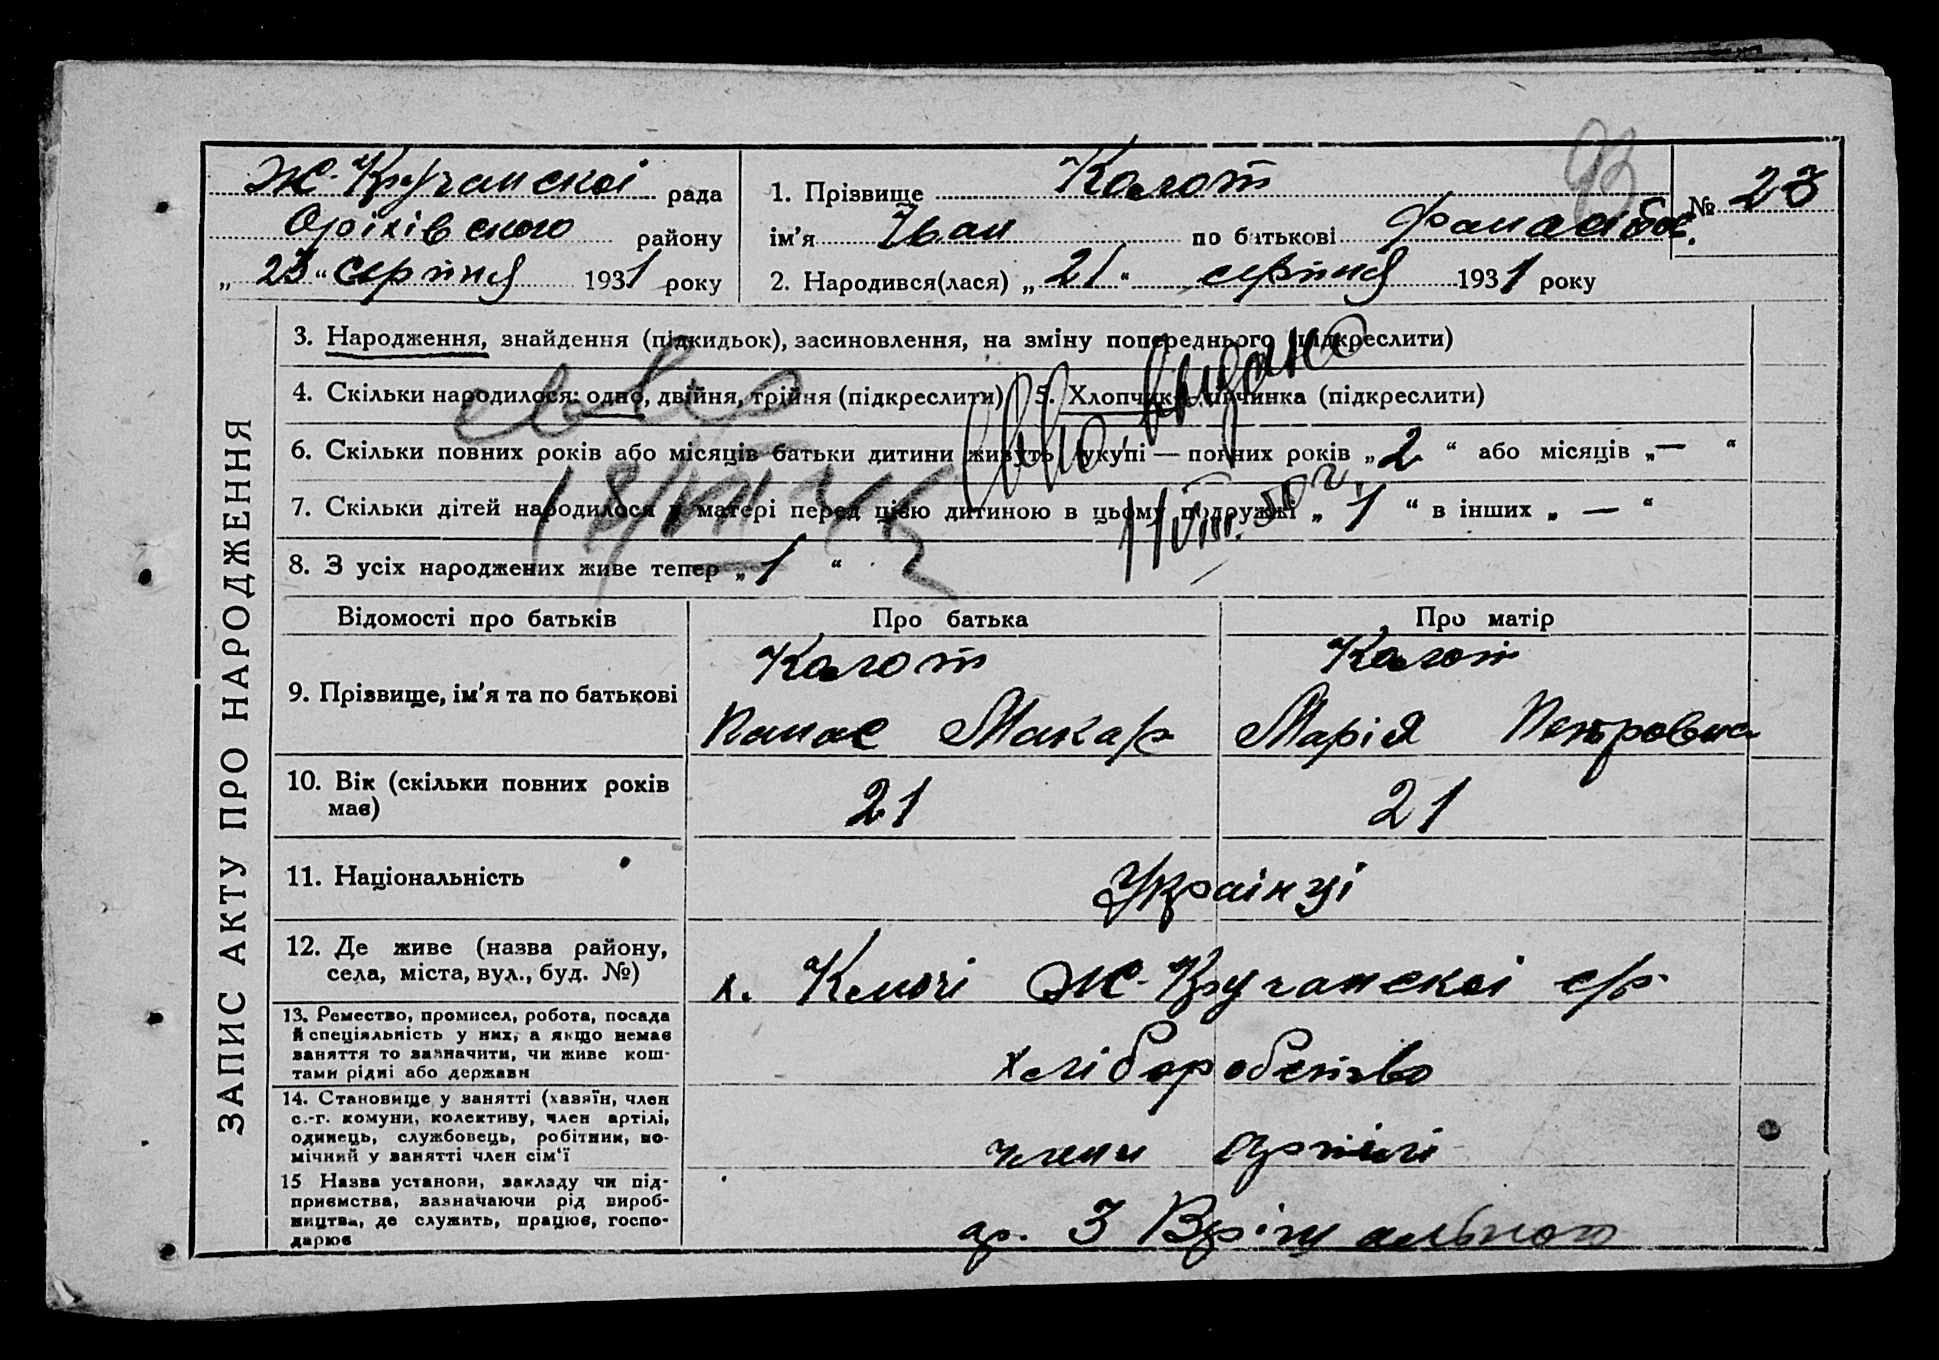 Ж-Кручанскої рада
Оріхівського району
„23“ серпня 1931 року
1. Прізвище Колот
№ 23
ім'я Іван по батькові Фанасієв.
2. Народився(лася) „21“ серпня 1931 року
ЗАПИС АКТУ ПРО НАРОДЖЕННЯ
3. Народження, знайдення (підкидьок), засиновлення, на зміну попереднього (підкреслити)
4. Скільки народилося: одно, двійня, трійня (підкреслити) 5. Хлопчик, дівчинка (підкреслити)
6. Скільки повних років або місяців батьки дитини живуть укупі — повних років „2“ або місяців „—“
7. Скільки дітей народилося у матері перед цією дитиною в цьому подружжі „1“ в інших „—“
8. З усіх народжених живе тепер „1“
св-во
18/VII 45
св-во видано
11/VIII. 50 г.
Відомості про батьків Про батька Про матір
9. Прізвище, ім'я та по батькові
Колот Колот
Панас Макар Марія Петровна
10. Вік (скільки повних років має)
21 21
11. Національність
Українці
12. Де живе (назва району,
села, міста, вул., буд. №)
х. Ключі Ж-Кручанскої с/р
13. Ремество, промисел, робота, посада
й спеціяльність у них, а якщо немає
заняття то зазначити, чи живе кош-
тами рідні або держави
хліборобство
14. Становище у занятті (хазяїн, член
с.-г. комуни, колективу, член артілі,
одинець, службовець, робітник, по-
мічний у занятті член сім'ї
члени артілі
15 Назва установи, закладу чи під-
приємства, зазначаючи рід вироб-
ництва, де служить, працює, госпо-
дарює
ар. 3